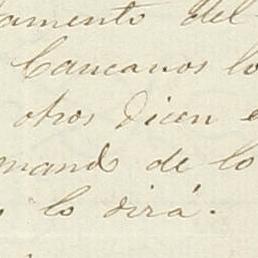 amento del
Caucanos lo
otros dicen e
mand de lo
lo dirá.